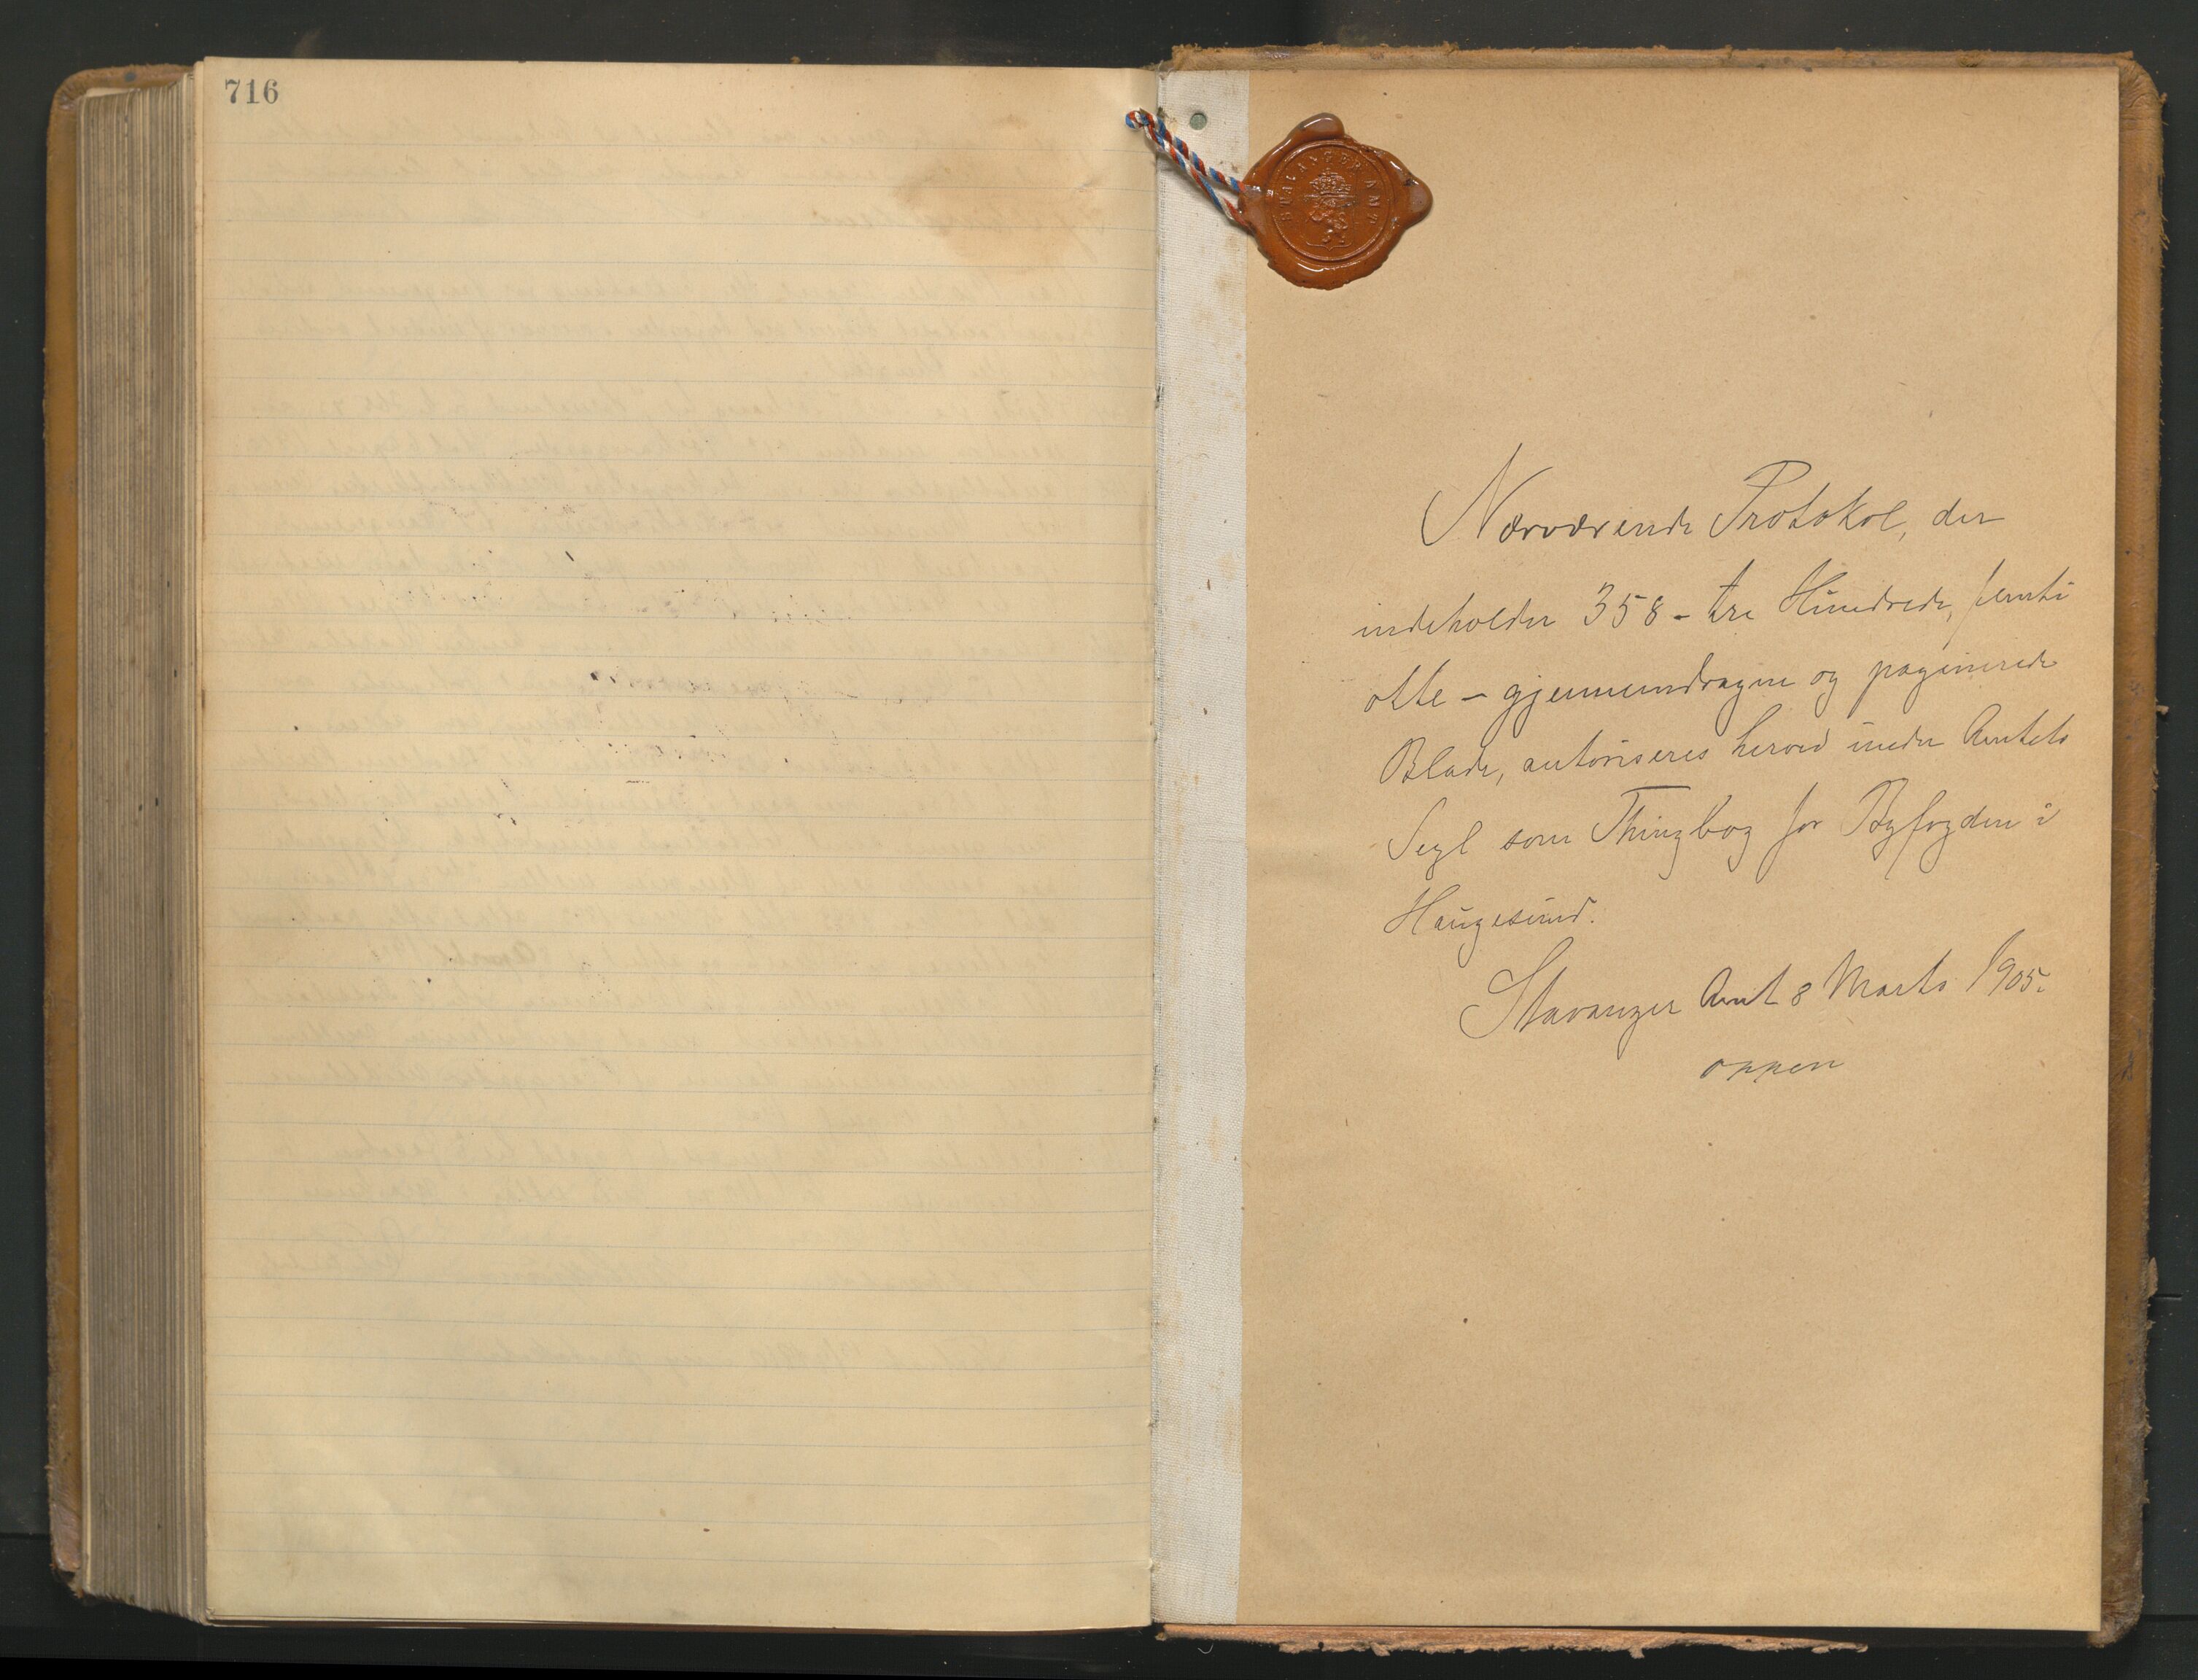 716
STAVANGER AMT
Nærværende Protokol, der
indeholder 358 - tre Hundrede, femti
otte - gjennemdragne og paginerede
Blade, autoriseres herved under Amtets
Segl som Thingbog for Byfogden i
Haugesund.
Stavanger Amt 8 Marts 1905.
Oppen